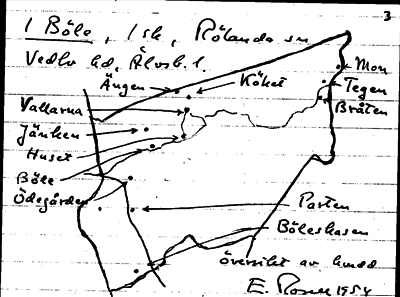 3
1 Böle, 1 sk, Rölanda sn
Vedbo hd, Älvsb. l.
Ängen
Köket
Mon
Tegen
Bråten
Vallarna
Jänken
Huset
Böle
Ödegården
Parten
Böleshasen
översikt av
E. 1954